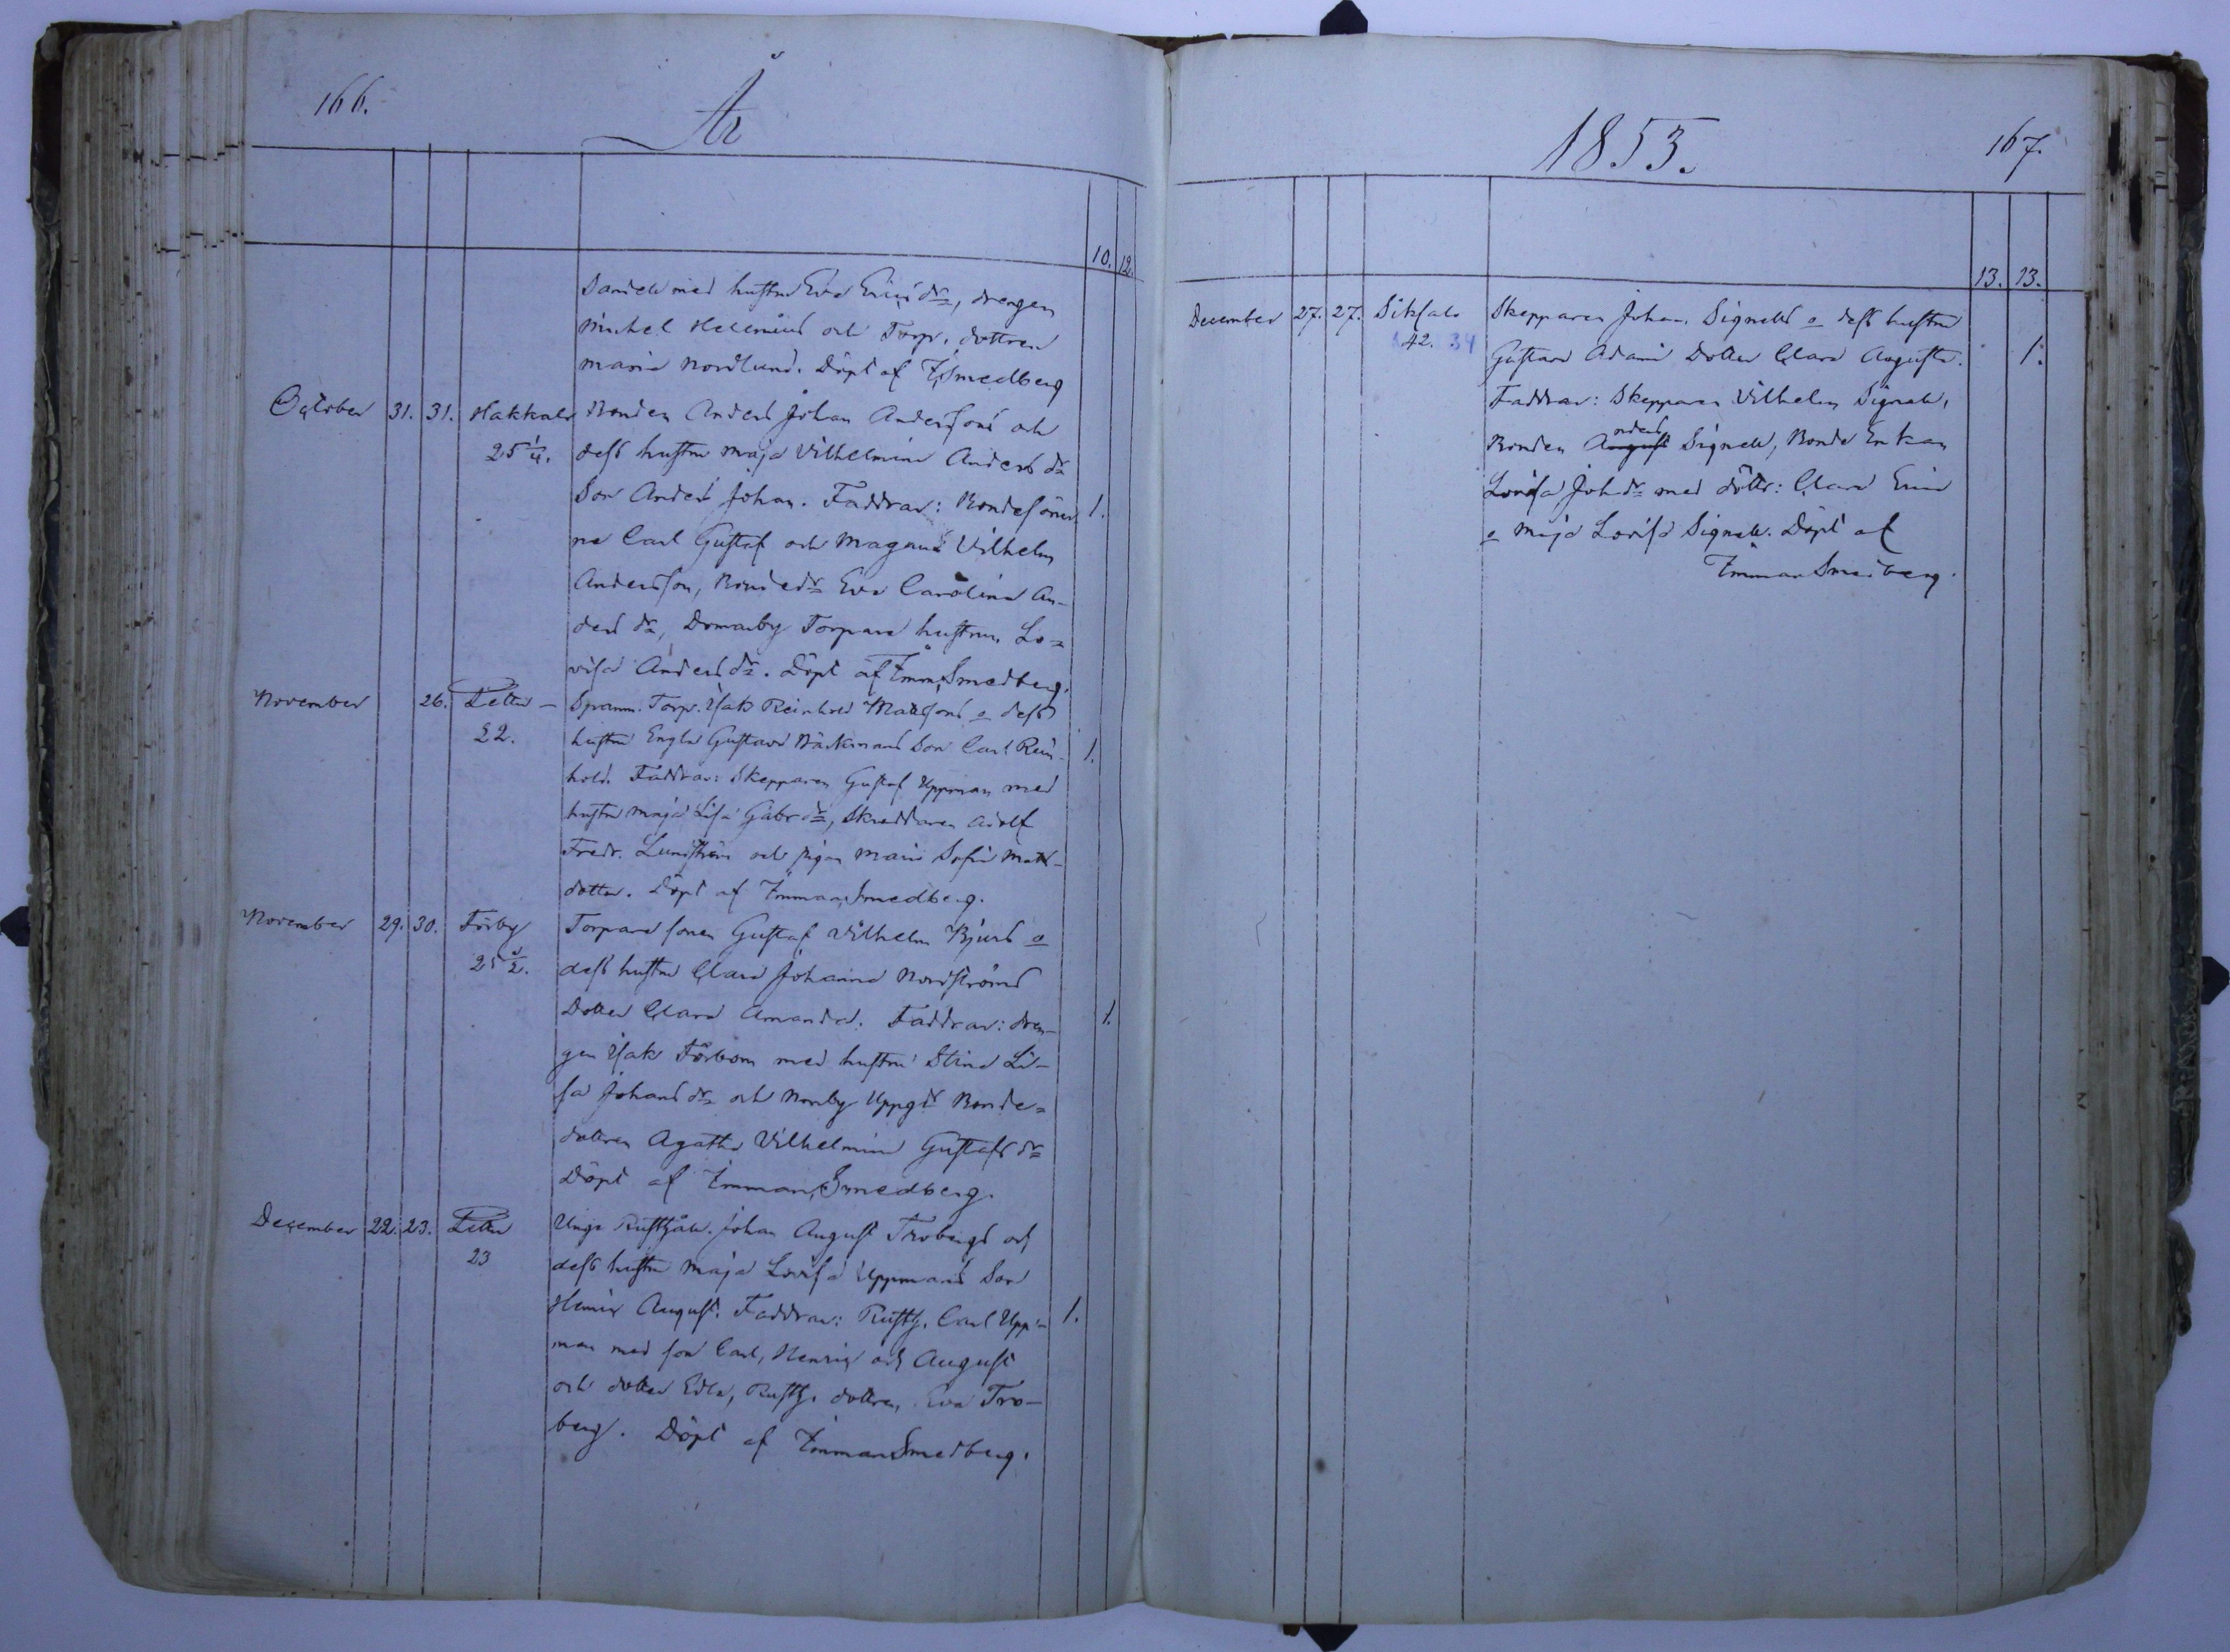 166.
År
10. 12.
Daniel med hustru Eva Erics dr, drengen
Michel Hellenius och Torp. dottren
Maria Nordlund. Döpt af I. Smedberg
October 31. 31. Hakkala Bonden Anders Johan Anderssons och
25 1/4. dess hustru Maja Vilhelmina Anders dr
Son Anders Johan. Faddrar: Bondesöner- 1.
ne Carl Gustaf och Magnus Vilhelm
Andersson, Bondedr Eva Carolina An-
ders dr, Domarby Torpare hustrun Lo-
visa Anders dr. Döpt af Imm. Smedberg.
November 26. Pettu - Spanm. Torp. Isak Reinhold Matssons o dess
22. hustru Engla Gustava Bäckmans Son Carl Rein- 1.
hold. Faddrar: Skepparen Gustaf Uppman med
hustru Maja Lisa Gabr dr, Skreddaren Adolf
Fredr. Lundström och pigan Maria Sofia Mats-
dotter. Döpt af Imman. Smedberg.
November 29. 30. Förby Torpare sonen Gustaf Vilhelm Bjurs o
25 1/2. dess hustru Clara Johanna Nordströms
Dotter Clara Amanda. Faddrar: dren- 1.
gen Isak Förbom med hustru Stina Li-
sa Johans dr och Norrby Uppgd Bonde-
dottren Agatha Vilhelmina Gustafs dr
Döpt af Imman. Smedberg.
December 22. 23. Pettu Unge Rusth. Johan August Frobergs och
23 dess hustru Maja Lovisa Uppmans Son
Henric August. Faddrar: Rusth. Carl Upp- 1.
man med son Carl, Henric och August
och dotter Edla, Rusth. dottren Eva Fro-
berg. Döpt af Imman Smedberg.
1853.
167.
13. 13.
December 27. 27. Siksalo Skepparen Johan Signells o dess hustru
42. 34 Gustava Adami Dotter Clara Augusta. 1.
Faddrar: Skepparen Vilhelm Signell,
nders
Bonden August Signell, Bonde Enkan
Lovisa Joh dr med döttr: Clara Erica
o Maja Lovisa Signell. Döpt af
Imman Smedberg.